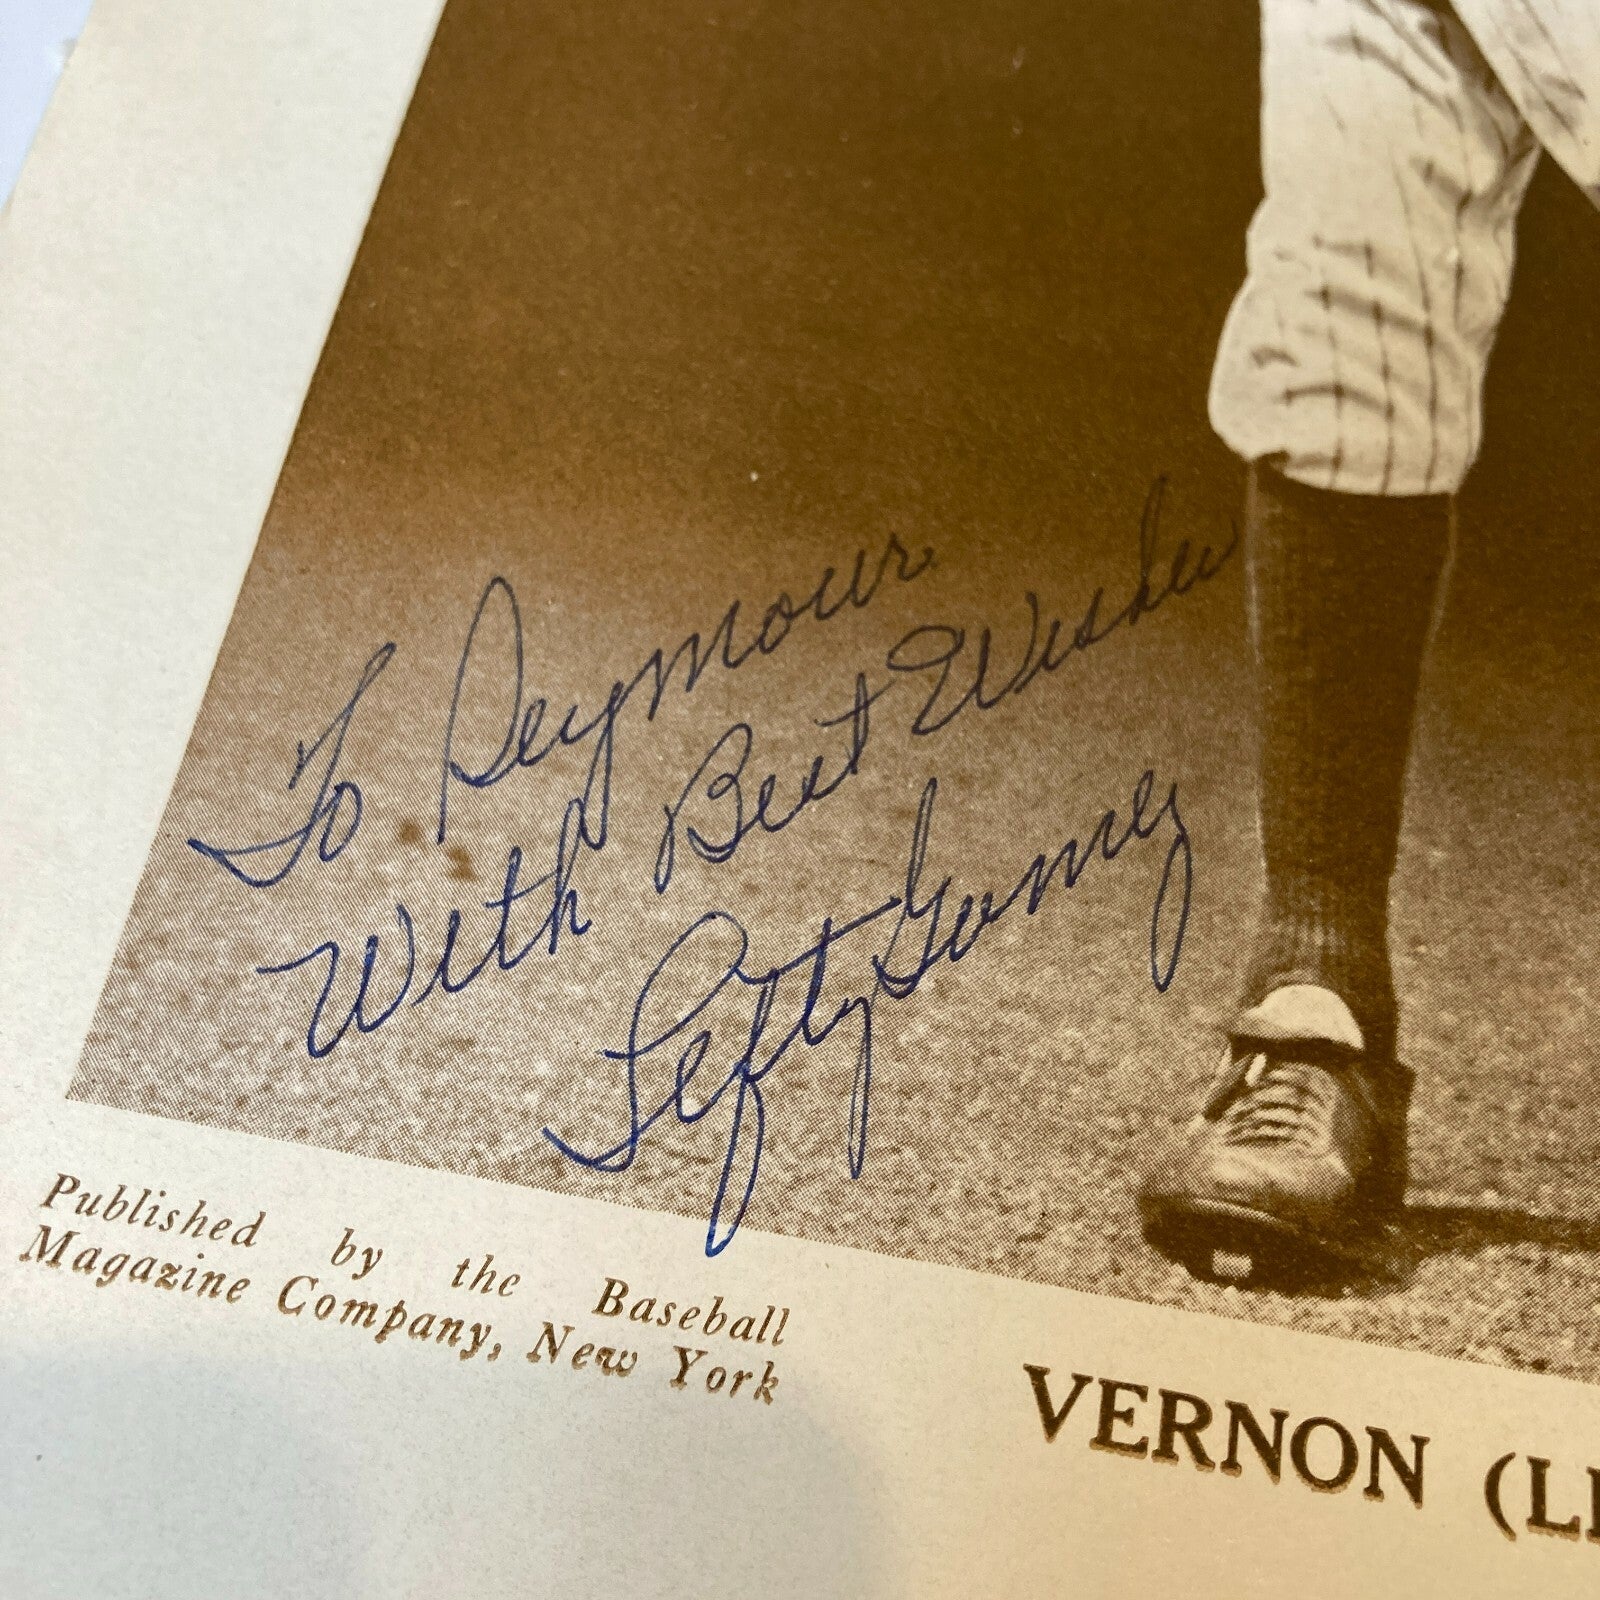 To Seymour
With Best Wishes
Lefty Gomez
Published by the Baseball
Magazine Company, New York
VERNON (LE